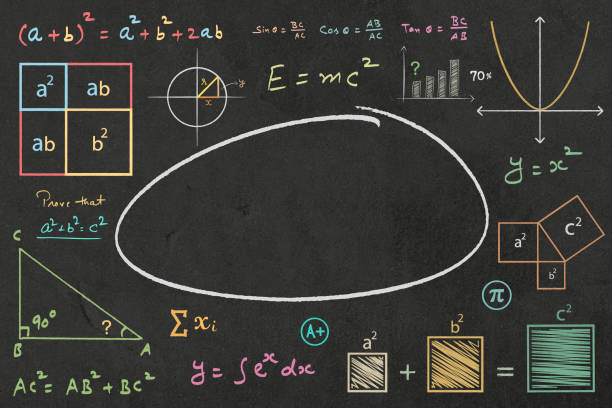 (a+b)² = a²+b²+2ab
Sin θ = BC/AC
Cos θ = AB/AC
Tan θ = BC/AB
a² ab
ab b²
r y
x
E = mc²
?
70%
y = x²
Prove that
a²+b²=c²
C
90°
?
B A
AC² = AB²+BC²
a² c²
b²
π
Σ xi
A+
y = ∫eˣ dx
a² + b² = c²